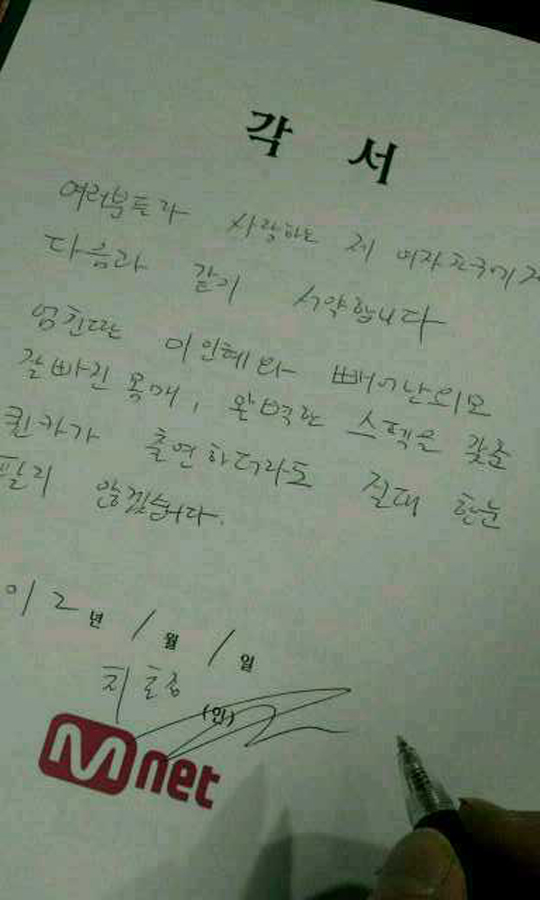 각 서
여러분들과 사랑하는 제 여자친구에게
다음과 같이 서약합니다
엄친딸 이인혜와 빼어난외모
잘빠진 몸매, 완벽한 스펙을 갖춘
퀸카가 출연하더라도 절대 한눈
팔지 않겠습니다.
12년 1월 1일
(인)
Mnet